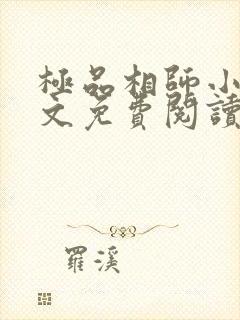 極品相師小
文免費閱讀
羅溪